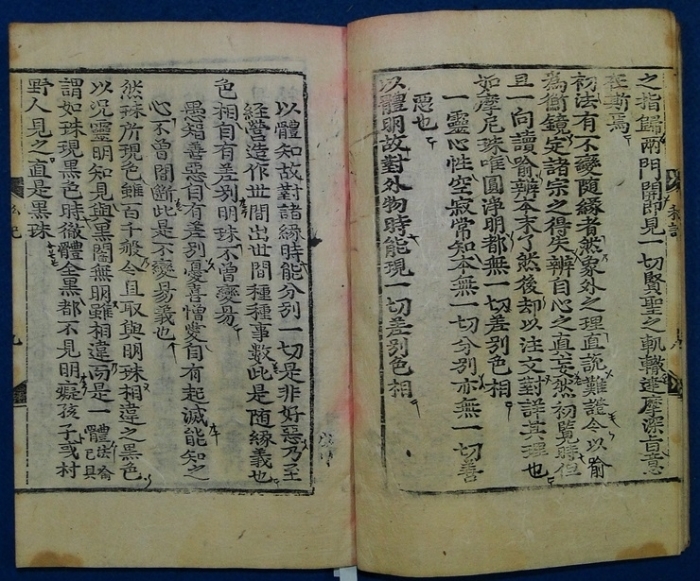 之指歸兩門開即見一切賢聖之軌轍達摩深旨意
在斯焉
初法有不變隨緣者然象外之理直說難證今以喻
為衡鏡定諸宗之得失辨自心之真妄然初覽時但
且一向讀喻辨本末了然後却以注文對詳其理也
如摩尼珠唯圓淨明都無一切差別色相
一靈心性空寂常知本無一切分別亦無一切善
惡也
以體明故對外物時能現一切差別色相
以體知故對諸緣時能分別一切是非好惡乃至
經營造作世間出世間種種事數此是隨緣義也
色相自有差別明珠不曾變易
愚智善惡自有差別憂喜憎愛自有起滅能知之
心不曾間斷此是不變易義也
然珠所現色雖百千般今且取與明珠相違之黑色
以況靈明知見與黑闇無明雖相違而是一體法喻已具
謂如珠現黑色時徹體全黑都不見明癡孩子或村
野人見之直是黑珠